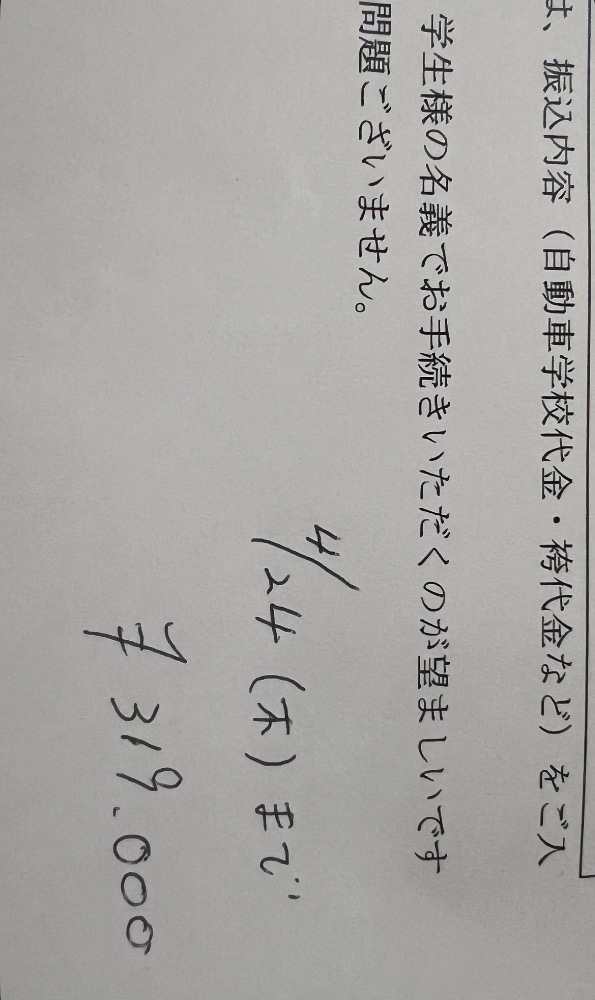 は、振込内容（自動車学校代金・袴代金など）をご入
学生様の名義でお手続きいただくのが望ましいです
問題ございません。
4/24（木）まで
¥319.000